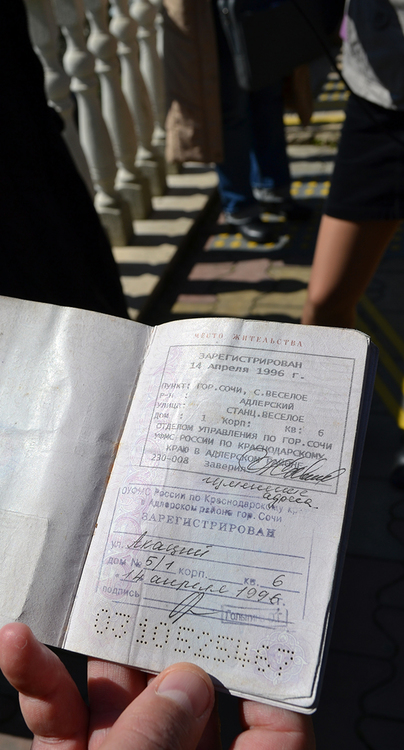 МЕСТО ЖИТЕЛЬСТВА
ЗАРЕГИСТРИРОВАН
14 апреля 1996 г.
Пункт: ГОР.СОЧИ, С.ВЕСЕЛОЕ
Р-н : АДЛЕРСКИЙ
Улица: СТАНЦ.ВЕСЕЛОЕ
Дом : 1 Корп: Кв: 6
ОТДЕЛОМ УПРАВЛЕНИЯ ПО ГОР.СОЧИ
УФМС РОССИИ ПО КРАСНОДАРСКОМУ
КРАЮ В АДЛЕРСКОМ РАЙОНЕ
230-008 Заверил
изменение
адреса.
ОУФМС России по Краснодарскому кр.
в Адлерском районе гор. Сочи
ЗАРЕГИСТРИРОВАН
ул. Акаций
дом № 5/1 корп. кв. 6
"14 апреля 1996г.
подпись